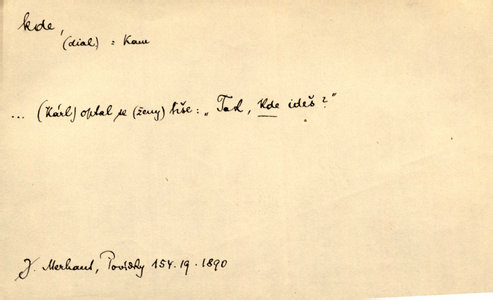 kde,
(dial.) = Kam
... (Kárl) optal se (ženy) tiše: „Tak, kde ideš?"
J. Merhaut, Povídky 154.19.1890